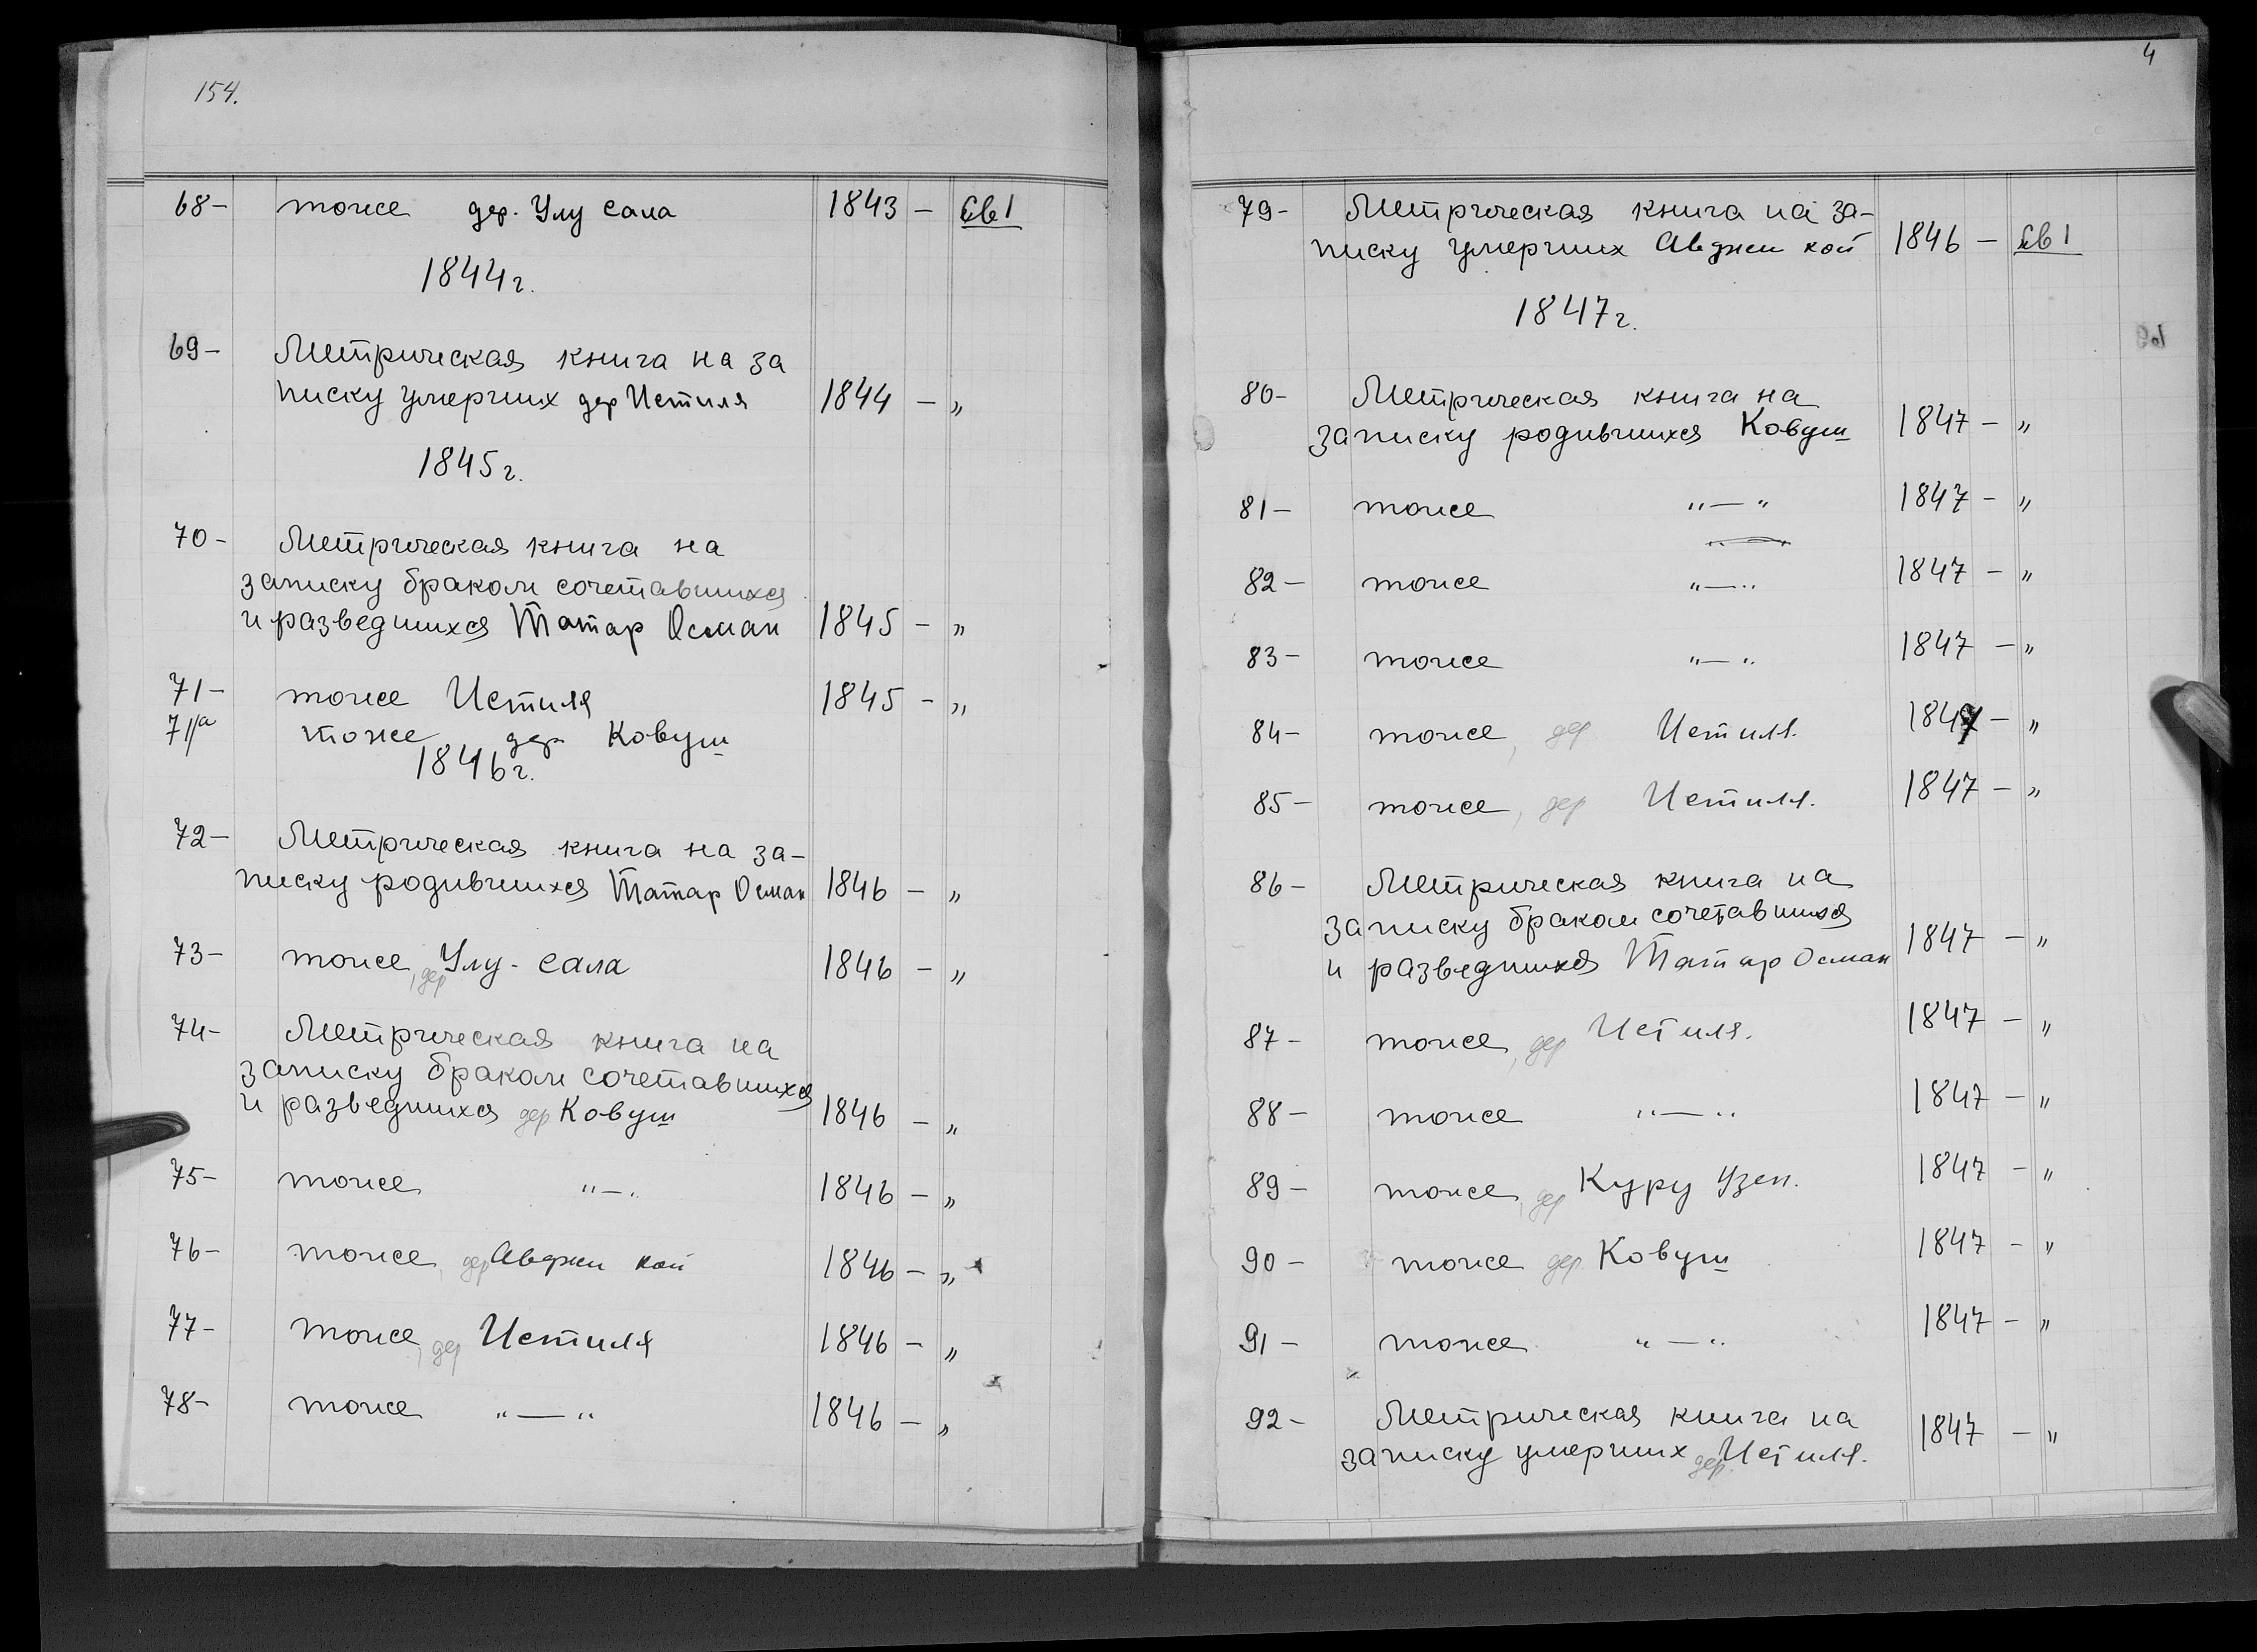 154.
68- тоже дер. Улу Сала 1843 - св 1
1844 г.
69- Метрическая книга на за
писку умерших дер Истиля 1844 - „
1845 г.
70- Метрическая книга на
записку браком сочетавшихся
и разведшихся Татар Осман 1845 - „
71- тоже Истиля 1845 - „
71/а тоже дер Ковуш
1846 г.
72- Метрическая книга на за-
писку родившихся Татар Осман 1846 - „
73- тоже, дер Улу-Сала 1846 - „
74- Метрическая книга на
записку браком сочетавшихся
и разведшихся дер Ковуш 1846 - „
75- тоже "—" 1846 - „
76- тоже, дер Авджи кой 1846 - „
77- тоже, дер Истиля 1846 - „
78- тоже "—" 1846 - „
4
79- Метрическая книга на за-
писку умерших Авджи кой 1846 - св 1
1847 г.
80- Метрическая книга на
записку родившихся Ковуш 1847 - „
81- тоже "—" 1847 - „
82- тоже "—" 1847 - „
83- тоже "—" 1847 - „
84- тоже, дер Истиля. 1847 - „
85- тоже, дер Истиля. 1847 - „
86- Метрическая книга на
записку браком сочетавшихся
и разведшихся Татар Осман 1847 - „
87- тоже, дер Истиля. 1847 - „
88- тоже "—" 1847 - „
89- тоже, дер Куру Узен. 1847 - „
90- тоже дер. Ковуш 1847 - „
91- тоже "—" 1847 - „
92- Метрическая книга на
записку умерших дер. Истиля. 1847 - „